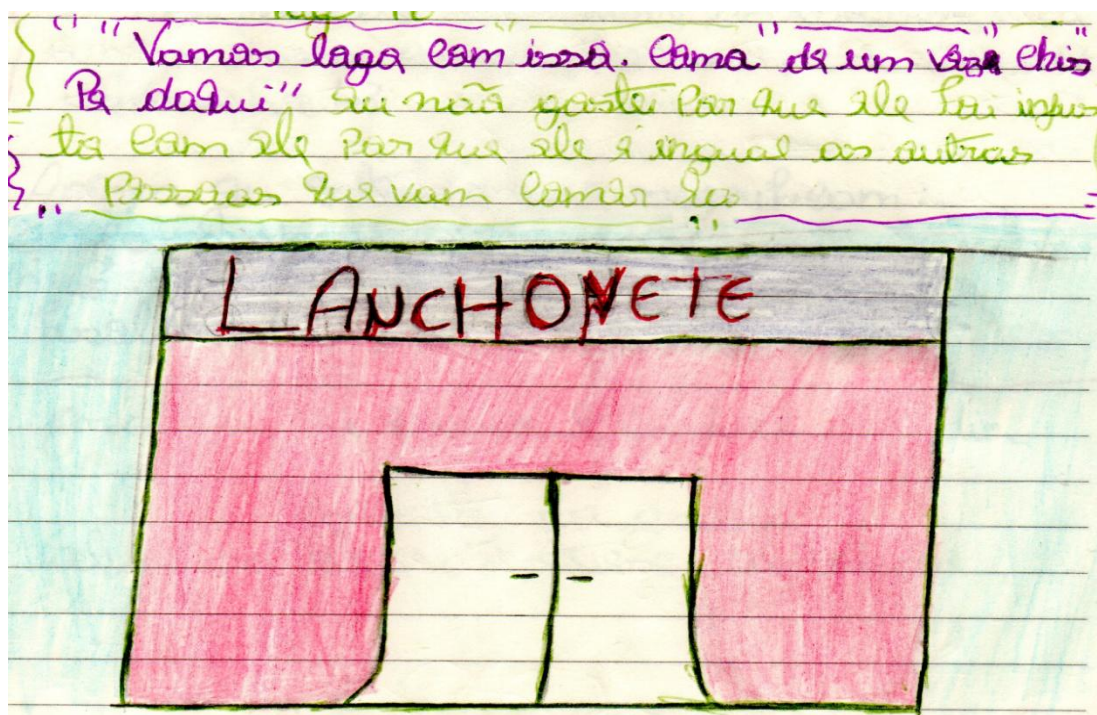 "Vamos logo com isso. Coma de um vez e chis
Pa daqui" eu não gostei Por que ele Foi injus
to com ele Por que ele é ingual os outros
Pessoas que vam comer la
LANCHONETE